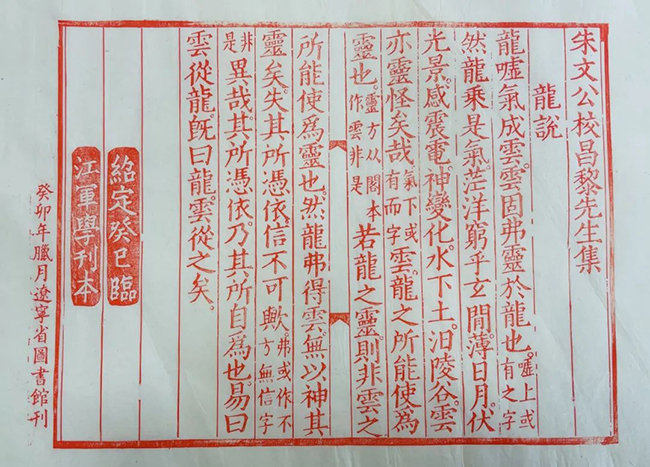 朱文公校昌黎先生集
龍說
龍噓氣成雲。雲固弗靈於龍也。噓上或有之字
然龍乘是氣。茫洋窮乎玄閒。薄日月。伏
光景。感震電。神變化。水下土。汩陵谷。雲
亦靈怪矣哉。氣下或有而字雲。龍之所能使為
靈也。靈方从閣本作雲非是若龍之靈。則非雲之
所能使為靈也。然龍弗得雲。無以神其
靈矣。失其所憑依。信不可歟。弗或作不方無信字
非是異哉。其所憑依。乃其所自為也。易曰
雲從龍。旣曰龍。雲從之矣。
紹定癸巳臨
江軍學刊本
癸卯年臘月遼寧省圖書館刊